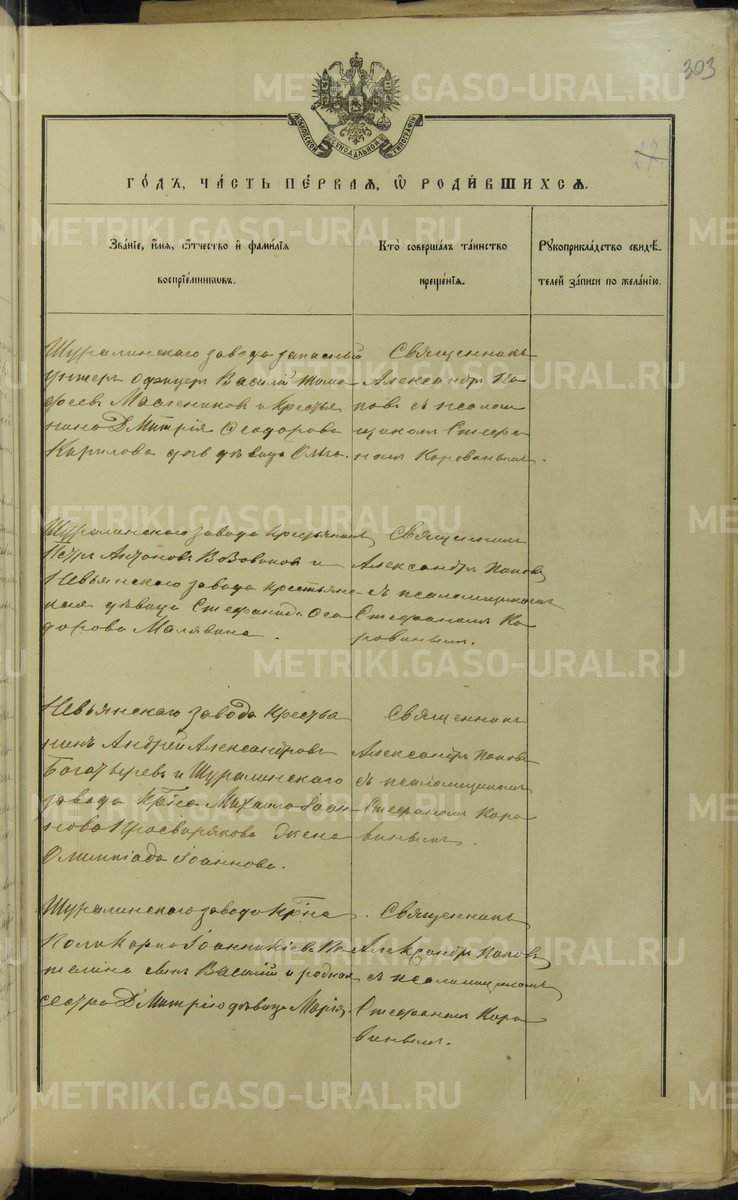 303
МОСКОВСКОЙ СѴНОДАЛЬНОЙ ТИПОГРАФІИ
ГО́ДЪ, ЧА́СТЬ ПЕ́РВАЯ, Ѡ҆ РОДИ́ВШИХСЯ.
Зва́нїе, и҆́мя, ѻ҆́тчество и҆ фами́лїя
воспрїе́мниковъ.
Кто̀ соверша́лъ та́инство
креще́нїя.
Рꙋкоприкла́дство свидѣ́-
телей за́писи по жела́нїю.
Шуралинскаго завода запасный
унтеръ офицеръ Василій Тимо
феевъ Масленниковъ и Кресть
янина Дмитрія Ѳеодорова
Кирилова дочь дѣвица Ольга.
Священникъ
Александръ По
повъ съ псалом
щикомъ Стефа
номъ Коровинымъ.
Шуралинскаго завода крестьянинъ
Петръ Антоновъ Вововиковъ и
Невьянскаго завода крестьянс
кая дѣвица Стефанида Ѳео
дорова Малявина.
Священникъ
Александръ Поповъ
съ псаломщикомъ
Стефаномъ Ко
ровинымъ.
Невьянскаго завода крестья
нинъ Андрей Александровъ
Богатыревъ и Шуралинскаго
завода кр-на Михаила Іоан
нова Просвирякова жена
Олимпіада Іоаннова.
Священникъ
Александръ Поповъ
съ псаломщикомъ
Стефаномъ Коро
винымъ.
Шуралинскаго завода кр-на
Поликарпа Іоанникіева По
тапина сынъ Василій и родная
сестра Дмитрію дѣвица Марія.
Священникъ
Александръ Поповъ
съ псаломщикомъ
Стефаномъ Коро
винымъ.
METRIKI.GASO-URAL.RU